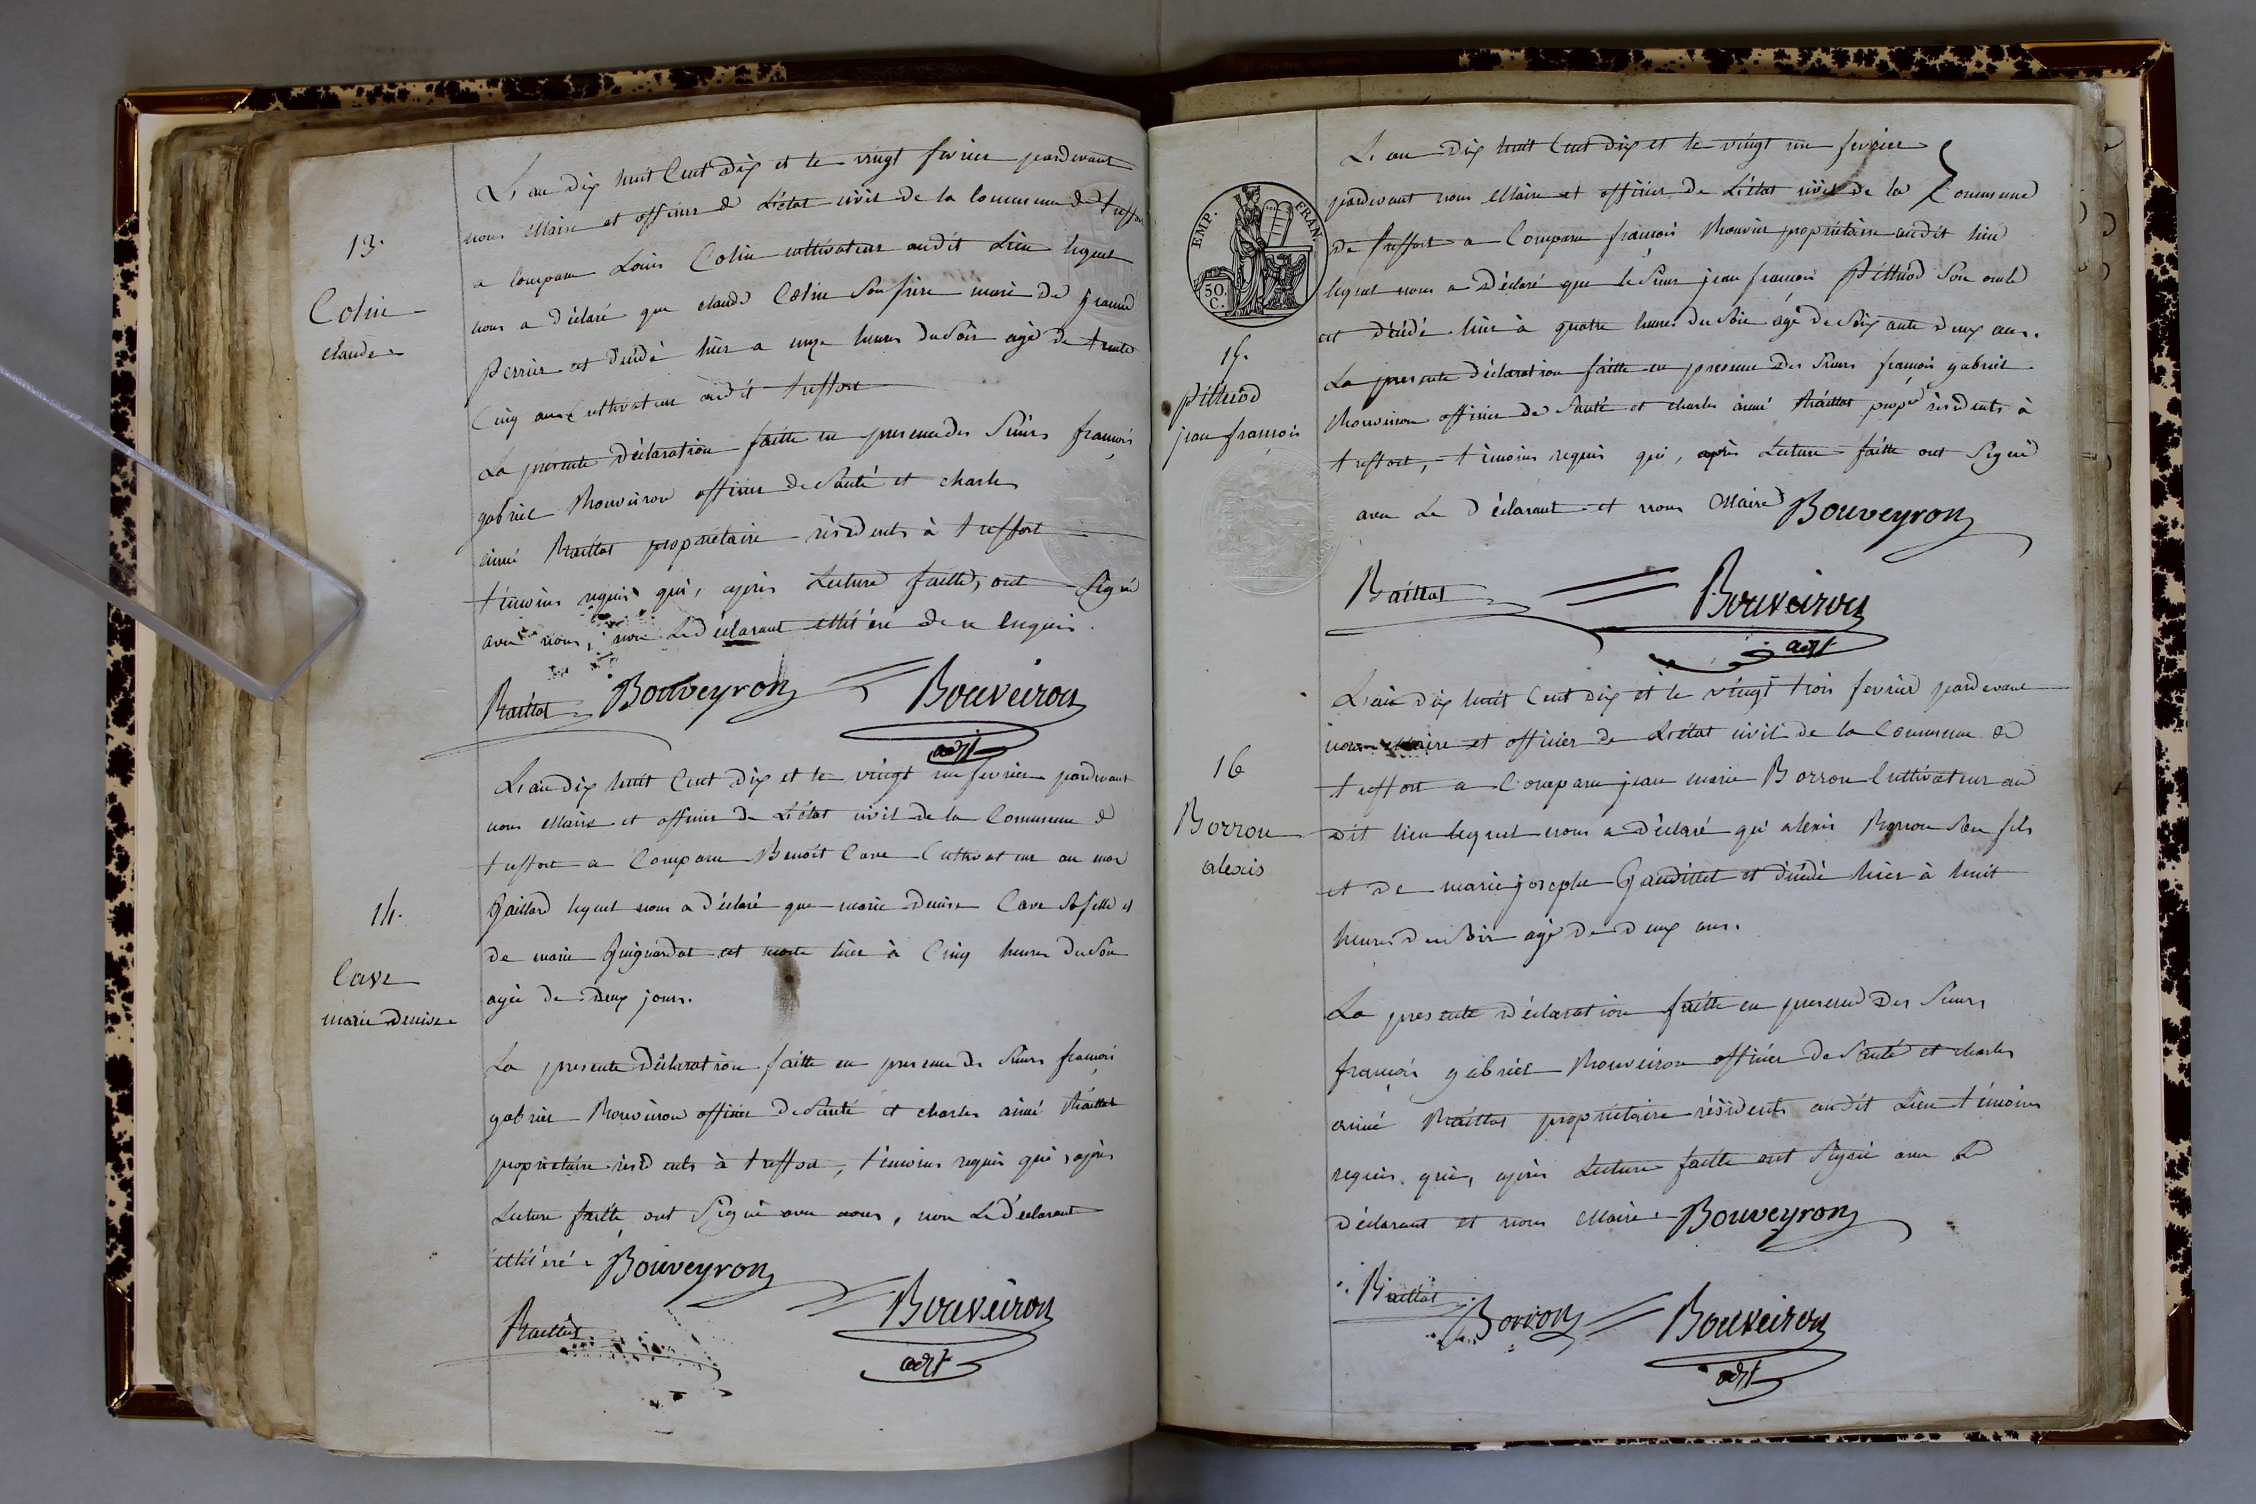 13.
Colin
claude
L'an dix huit Cent dix et le vingt fevrier pardevant
nous Maire et officier de L'état civil de la Commune de treffort
a Comparu Louis Colin cultivateur audit Lieu lequel
nous a déclaré que claude Colin son frère mari de jeanne
perrier est décédé hier a onze heures du Soir agé de trente
Cinq ans Cultivateur audit treffort
La présente déclaration faitte en presence des Sieurs françois
gabriel Bouveiron officier de Santé et charles
aimé Raillat propriétaire résidents à treffort
témoins requis qui, après Lecture faitte, ont Signé
avec nous, non Le déclarant illitéré de ce Enquis.
Raillat Bouveyron Bouveiron
adjt
14.
Cave
marie denise
L'an dix huit Cent dix et le vingt un fevrier pardevant
nous Maire et officier de L'état civil de la Commune de
treffort a Comparu Benoit Cave Cultivateur au mas
Gaillard lequel nous a déclaré que marie denise Cave Sa fille et
de marie Guignardat est morte hier à Cinq heures du Soir
agée de deux jours.
La presente déclaration faitte en presence des Sieurs françois
gabriel Bouveiron officier de Santé et charles aimé Raillat
propriétaire résidents à treffort, témoins requis qui, après
Lecture faitte ont Signé avec nous, non Le déclarant
illitéré. Bouveyron
Raillat Bouveiron
adjt
EMP. FRAN.
50. C.
15.
pithiod
jean françois
L'an dix huit Cent dix et le vingt un fevrier
pardevant nous Maire et officier de L'état civil de la Commune
de treffort a Comparu françois Bouvier propriétaire audit lieu
lequel nous a déclaré que le Sieur jean françois Pithiod Son oncle
est décédé hier à quatre heures du Soir agé de Soixante deux ans.
La presente déclaration faitte en presence des Sieurs françois gabriel
Bouveiron officier de Santé et charles aimé Raillat propre résidents à
treffort, témoins requis qui, après Lecture faitte ont Signé
avec Le déclarant et nous Maire Bouveyron
Raillat Bouveiron
adjt
16
Borron
alexis
L'an dix huit Cent dix et le vingt trois fevrier pardevant
nous Maire et officier de L'état civil de la Commune de
treffort a Comparu jean marie Borron Cultivateur au
dit lieu lequel nous a déclaré qu'alexis Borron Son fils
et de marie josephe Gaudillet est décédé hier à huit
heures du Soir agé de deux ans.
La presente déclaration faitte en presence des Sieurs
françois gabriel Bouveiron officier de Santé et charles
aimé Raillat propriétaire résidents audit Lieu témoins
requis qui, après Lecture faitte ont Signé avec Le
déclarant et nous Maire. Bouveyron
Raillat Borron Bouveiron
adjt